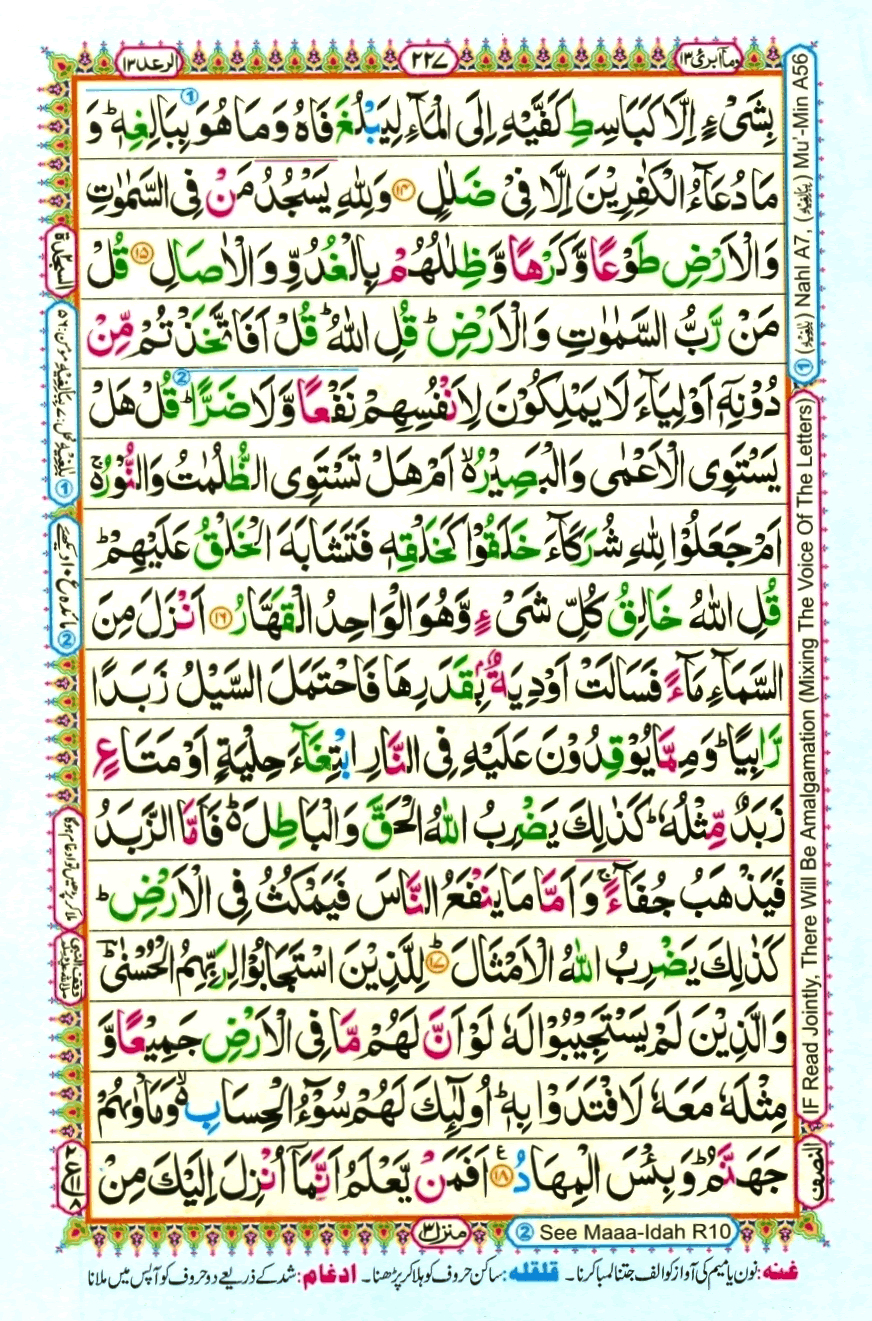 وماابرئ ١٣
٢٢٧
الرعد ١٣
بِشَىۡءٍ اِلَّا كَبَاسِطِ كَفَّيۡهِ اِلَى الۡمَآءِ لِيَبۡلُغَ فَاهُ وَمَا هُوَ بِبَالِغِهٖ ؕ وَ
مَا دُعَآءُ الۡكٰفِرِيۡنَ اِلَّا فِىۡ ضَلٰلٍ ﴿۱۴﴾ وَلِلّٰهِ يَسۡجُدُ مَنۡ فِى السَّمٰوٰتِ
وَالۡاَرۡضِ طَوۡعًا وَّكَرۡهًا وَّظِلٰلُهُمۡ بِالۡغُدُوِّ وَالۡاٰصَالِ ﴿۱۵﴾ قُلۡ
مَنۡ رَّبُّ السَّمٰوٰتِ وَالۡاَرۡضِ ؕ قُلِ اللّٰهُ ؕ قُلۡ اَفَاتَّخَذۡتُمۡ مِّنۡ
دُوۡنِهٖۤ اَوۡلِيَآءَ لَا يَمۡلِكُوۡنَ لِاَنۡفُسِهِمۡ نَفۡعًا وَّلَا ضَرًّا ؕ قُلۡ هَلۡ
يَسۡتَوِى الۡاَعۡمٰى وَالۡبَصِيۡرُ ۙ اَمۡ هَلۡ تَسۡتَوِى الظُّلُمٰتُ وَالنُّوۡرُ ۚ
اَمۡ جَعَلُوۡا لِلّٰهِ شُرَكَآءَ خَلَقُوۡا كَخَلۡقِهٖ فَتَشَابَهَ الۡخَلۡقُ عَلَيۡهِمۡ ؕ
قُلِ اللّٰهُ خَالِقُ كُلِّ شَىۡءٍ وَّهُوَ الۡوَاحِدُ الۡقَهَّارُ ﴿۱۶﴾ اَنۡزَلَ مِنَ
السَّمَآءِ مَآءً فَسَالَتۡ اَوۡدِيَةٌۢ بِقَدَرِهَا فَاحۡتَمَلَ السَّيۡلُ زَبَدًا
رَّابِيًا ؕ وَمِمَّا يُوۡقِدُوۡنَ عَلَيۡهِ فِى النَّارِ ابۡتِغَآءَ حِلۡيَةٍ اَوۡ مَتَاعٍ
زَبَدٌ مِّثۡلُهٗ ؕ كَذٰلِكَ يَضۡرِبُ اللّٰهُ الۡحَقَّ وَالۡبَاطِلَ ؕ فَاَمَّا الزَّبَدُ
فَيَذۡهَبُ جُفَآءً ۚ وَاَمَّا مَا يَنۡفَعُ النَّاسَ فَيَمۡكُثُ فِى الۡاَرۡضِ ؕ
كَذٰلِكَ يَضۡرِبُ اللّٰهُ الۡاَمۡثَالَ ﴿ؕ۱۷﴾ لِلَّذِيۡنَ اسۡتَجَابُوۡا لِرَبِّهِمُ الۡحُسۡنٰى ؕ
وَالَّذِيۡنَ لَمۡ يَسۡتَجِيۡبُوۡا لَهٗ لَوۡ اَنَّ لَهُمۡ مَّا فِى الۡاَرۡضِ جَمِيۡعًا وَّ
مِثۡلَهٗ مَعَهٗ لَافۡتَدَوۡا بِهٖ ؕ اُولٰٓٮِٕكَ لَهُمۡ سُوۡٓءُ الۡحِسَابِ ۙ وَمَاۡوٰٮهُمۡ
جَهَنَّمُ ؕ وَبِئۡسَ الۡمِهَادُ ﴿۱۸﴾ اَفَمَنۡ يَّعۡلَمُ اَنَّمَاۤ اُنۡزِلَ اِلَيۡكَ مِنۡ
① (بٰلِغِيۡهِ) Nahl A7, (بِبَالِغِيۡهِ) Mu'-Min A56
IF Read Jointly, There Will Be Amalgamation (Mixing The Voice Of The Letters)
النصف
السجدة
② مائدہ رکوع ١٠ دیکھیے
ملا کر پڑھیں تو ادغام ہوگا
وقف النبی
منزل ٣
② See Maaa-Idah R10
غنه: نون یا میم کی آواز کو الف جتنا لمبا کرنا۔ قلقله: ساکن حروف کو ہلا کر پڑھنا۔ ادغام: شد کے ذریعے دو حروف کو آپس میں ملانا